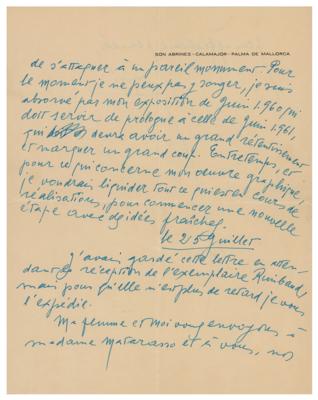 SON ABRINES - CALAMAJOR - PALMA DE MALLORCA
de s'attaquer à un pareil monument. Pour
le moment je ne peux pas y songer, je suis
absorvé par mon exposition de Juin 1.960 qui
doit servir de prologue à celle de Juin 1.961,
qui devra avoir un grand retentissement
et marquer un grand coup. Entretemps, et
pour ce qui concerne mon oeuvre graphique,
je voudrais liquider tout ce qui est en cours de
réalisations, pour commencer une nouvelle
étape avec des idées fraîches.
le 25 Juillet
J'avais gardé cette lettre en atten-
dant la réception de l'exemplaire Rimbaud,
mais pour qu'elle n'est plus de retard je vous
l'expédie.
Ma femme et moi vous envoyons à
madame Matarasso et à vous, nos